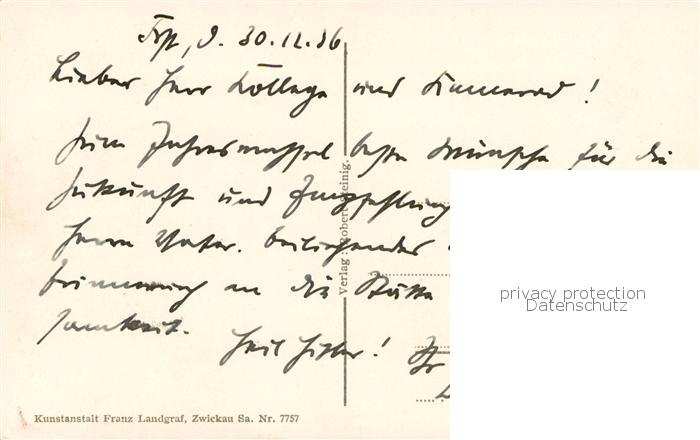 d. 30.12.36
Lieber Herr Kollege und Kamerad!
Zum Jahreswechsel beste Wünsche für die
Zukunft und Empfehlung
Herrn Vater. Beiliegendes
Erinnerung an die
samkeit.
Heil Hitler!
Verlag: Robert
Kunstanstalt Franz Landgraf, Zwickau Sa. Nr. 7757
privacy protection
Datenschutz